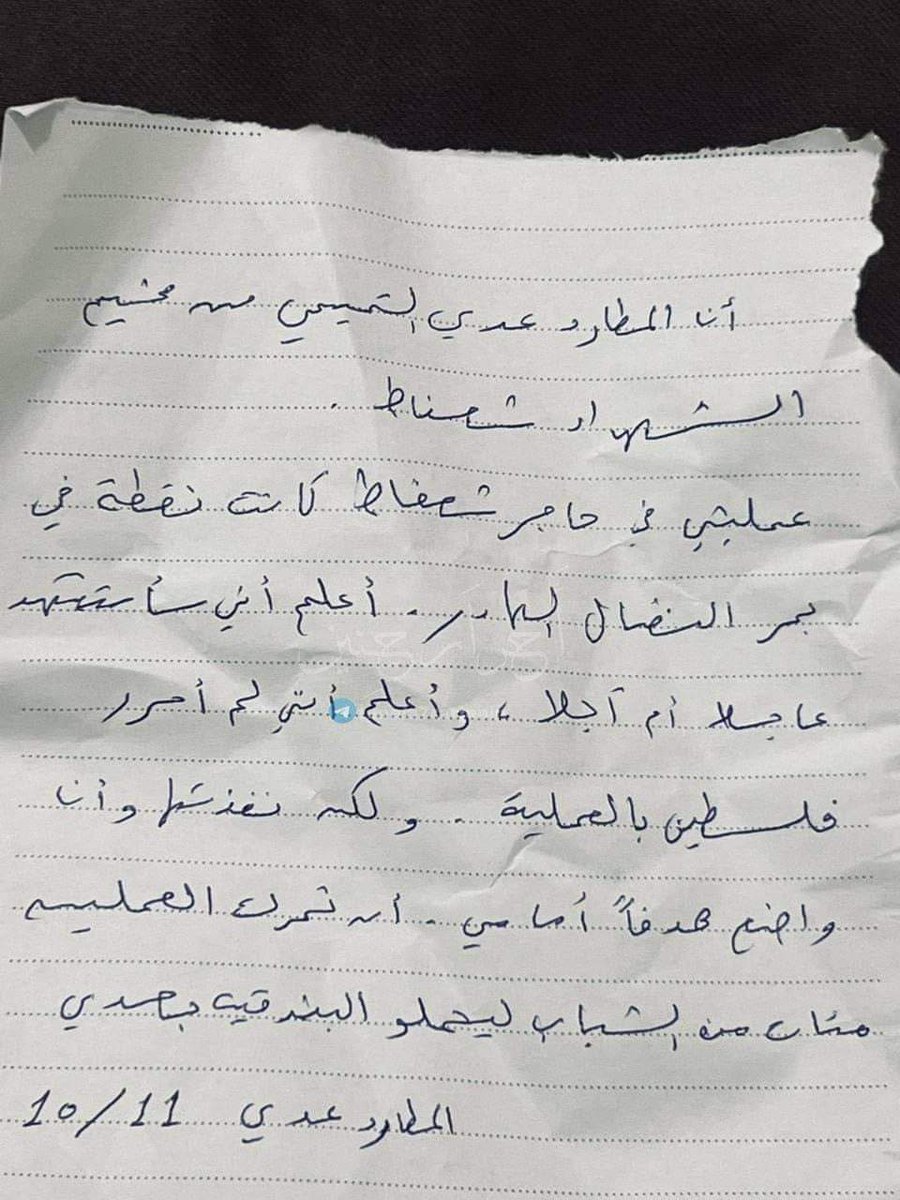 أنا المطارد عدي التميمي من مخيم
الشهداء شعفاط .
عمليتي في حاجز شعفاط كانت نقطة في
بحر النضال الهادر . أعلم أني سأستشهد
عاجلا أم آجلا ، وأعلم أنني لم أحرر
فلسطين بالعملية . ولكن نفذتها وأنا
واضع هدفاً أمامي . أن تحرك العملية
مئات من الشباب ليحملو البندقية بعدي
المطارد عدي 10/11